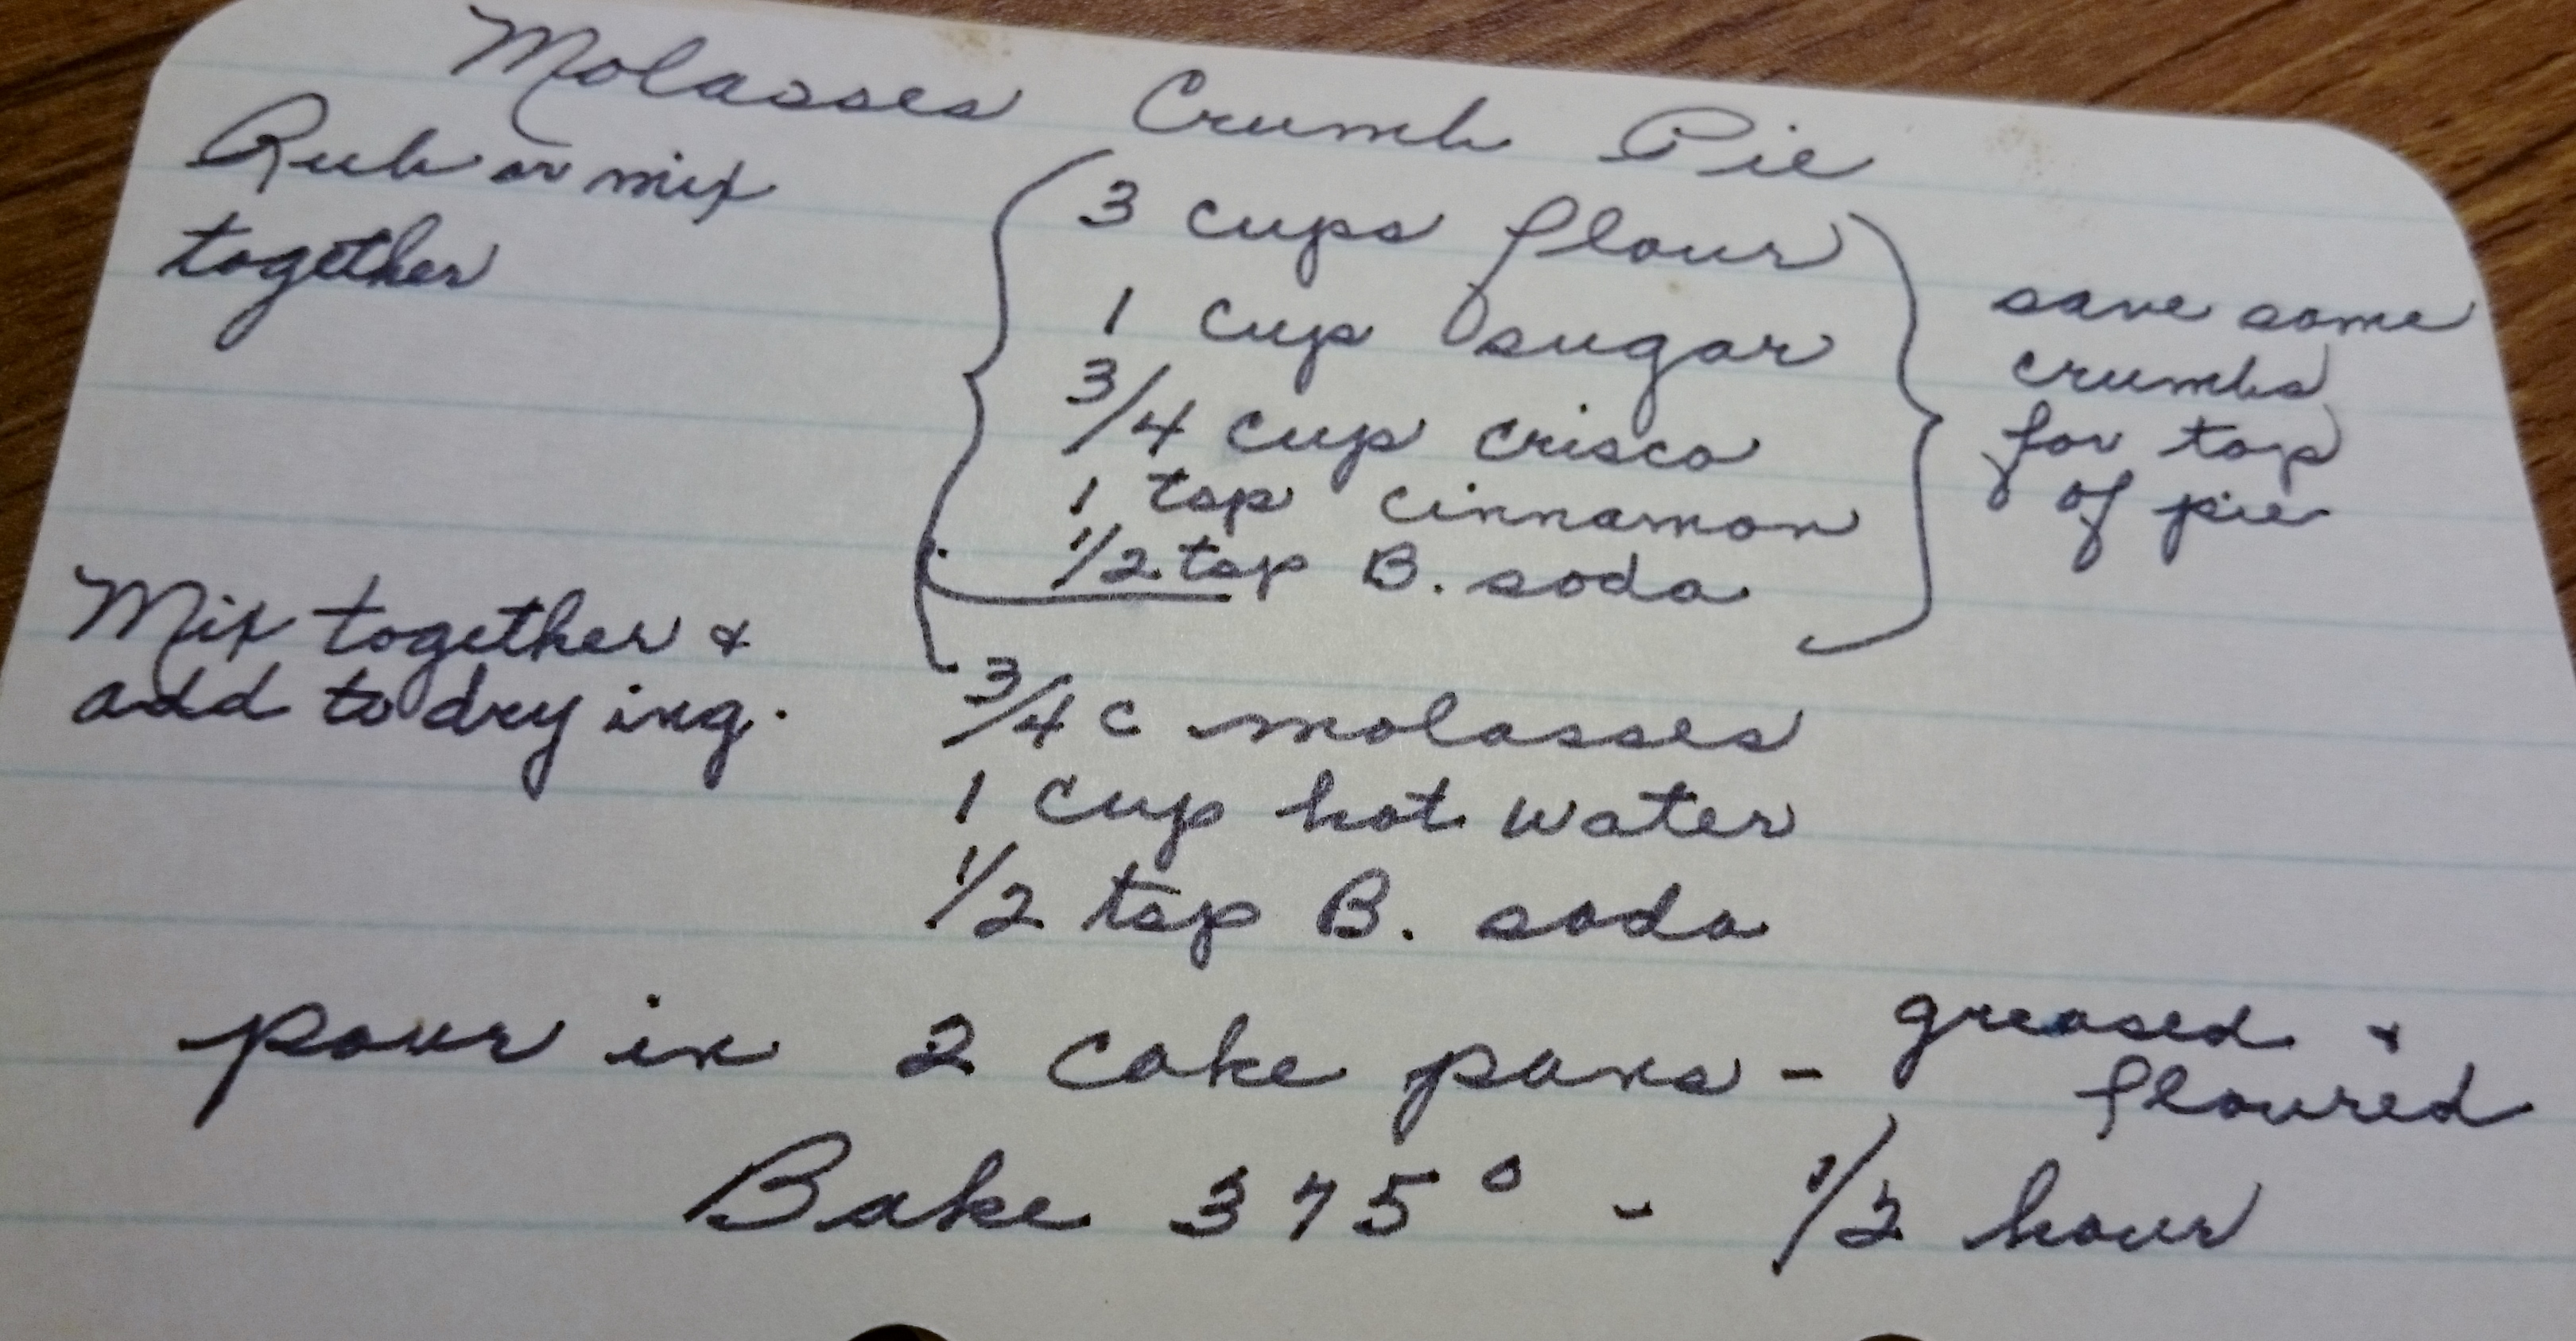 Molasses Crumb Pie
Rub or mix
together
3 cups flour
1 cup sugar
3/4 cup crisco
1 tsp cinnamon
1/2 tsp B. soda
save some
crumbs
for top
of pie
Mix together &
add to dry ing.
3/4 c molasses
1 cup hot water
1/2 tsp B. soda
pour in 2 cake pans - greased &
floured
Bake 375° - 1/2 hour